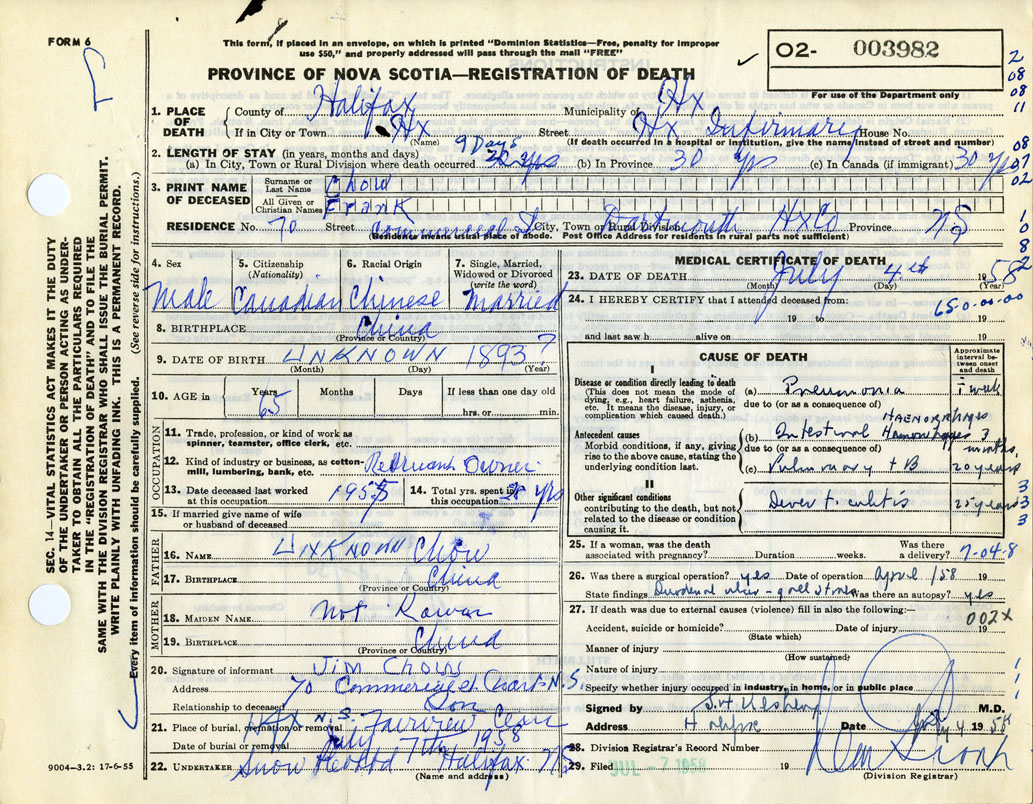 FORM 6
This form, if placed in an envelope, on which is printed "Dominion Statistics—Free, penalty for improper
use $50," and properly addressed will pass through the mail "FREE"
O2- 003982
For use of the Department only
PROVINCE OF NOVA SCOTIA—REGISTRATION OF DEATH
1. PLACE OF DEATH County of Halifax Municipality of Hx
If in City or Town Hx Street Hx Infirmary House No.
(Name) (If death occurred in a hospital or institution, give the name instead of street and number)
2. LENGTH OF STAY (in years, months and days) 9 Days
(a) In City, Town or Rural Division where death occurred (b) In Province 30 yrs (c) In Canada (if immigrant) 30 yrs
3. PRINT NAME OF DECEASED Surname or Last Name Chow
All Given or Christian Names Frank
RESIDENCE No. 70 Street Commercial St City, Town or Rural Division Dartmouth Hx Co Province NS
(Residence means usual place of abode. Post Office Address for residents in rural parts not sufficient)
4. Sex Male
5. Citizenship (Nationality) Canadian
6. Racial Origin Chinese
7. Single, Married, Widowed or Divorced (write the word) Married
8. BIRTHPLACE China
(Province or Country)
9. DATE OF BIRTH UNKNOWN 1893 ?
(Month) (Day) (Year)
10. AGE in Years 65 Months Days If less than one day old
hrs. or min.
OCCUPATION
11. Trade, profession, or kind of work as spinner, teamster, office clerk, etc.
12. Kind of industry or business, as cotton-mill, lumbering, bank, etc. Owner
13. Date deceased last worked at this occupation 1955 14. Total yrs. spent in this occupation 28 yrs
15. If married give name of wife or husband of deceased
FATHER
16. NAME Unknown Chow
17. BIRTHPLACE China
(Province or Country)
MOTHER
18. MAIDEN NAME Not Known
19. BIRTHPLACE China
(Province or Country)
20. Signature of informant Jim Chow
Address 70 Commercial St N.S.
Relationship to deceased Son
21. Place of burial, cremation or removal Hfx N.S. Fairview
Date of burial or removal July 7th 1958
22. UNDERTAKER Snow Halifax NS
(Name and address)
MEDICAL CERTIFICATE OF DEATH
23. DATE OF DEATH July 4th 1958
(Month) (Day) (Year)
24. I HEREBY CERTIFY that I attended deceased from:
650-00-00
19 to 19
and last saw h alive on 19
CAUSE OF DEATH
Approximate interval between onset and death
I
Disease or condition directly leading to death
(This does not mean the mode of dying, e.g., heart failure, asthenia, etc. It means the disease, injury, or complication which caused death.)
(a) Pneumonia 1 week
due to (or as a consequence of)
Antecedent causes
Morbid conditions, if any, giving rise to the above cause, stating the underlying condition last.
HAEMORRHAGES
(b) Intestinal Haemorrhages 3 months
due to (or as a consequence of)
(c) Pulmonary TB 20 years
II
Other significant conditions
contributing to the death, but not related to the disease or condition causing it.
25 years
25. If a woman, was the death associated with pregnancy? Duration weeks. Was there a delivery? 7-04-8
26. Was there a surgical operation? yes Date of operation April /58 19
State findings Duodenal ulcer - gall stones Was there an autopsy? yes
27. If death was due to external causes (violence) fill in also the following:—
002X
Accident, suicide or homicide? Date of injury 19
(State which)
Manner of injury
(How sustained)
Nature of injury
Specify whether injury occurred in industry, in home, or in public place
Signed by M.D.
Address Halifax Date July 4 1958
28. Division Registrar's Record Number
29. Filed JUL - 7 1958 19
(Division Registrar)
SEC. 14—VITAL STATISTICS ACT MAKES IT THE DUTY
OF THE UNDERTAKER OR PERSON ACTING AS UNDER-
TAKER TO OBTAIN ALL THE PARTICULARS REQUIRED
IN THE "REGISTRATION OF DEATH" AND TO FILE THE
SAME WITH THE DIVISION REGISTRAR WHO SHALL ISSUE THE BURIAL PERMIT.
WRITE PLAINLY WITH UNFADING INK. THIS IS A PERMANENT RECORD.
Every item of information should be carefully supplied. (See reverse side for instructions.)
9004—3.2: 17-6-55
2
08
08
11
08
07
02
1
0
8
2
3
3
3
1
1
1